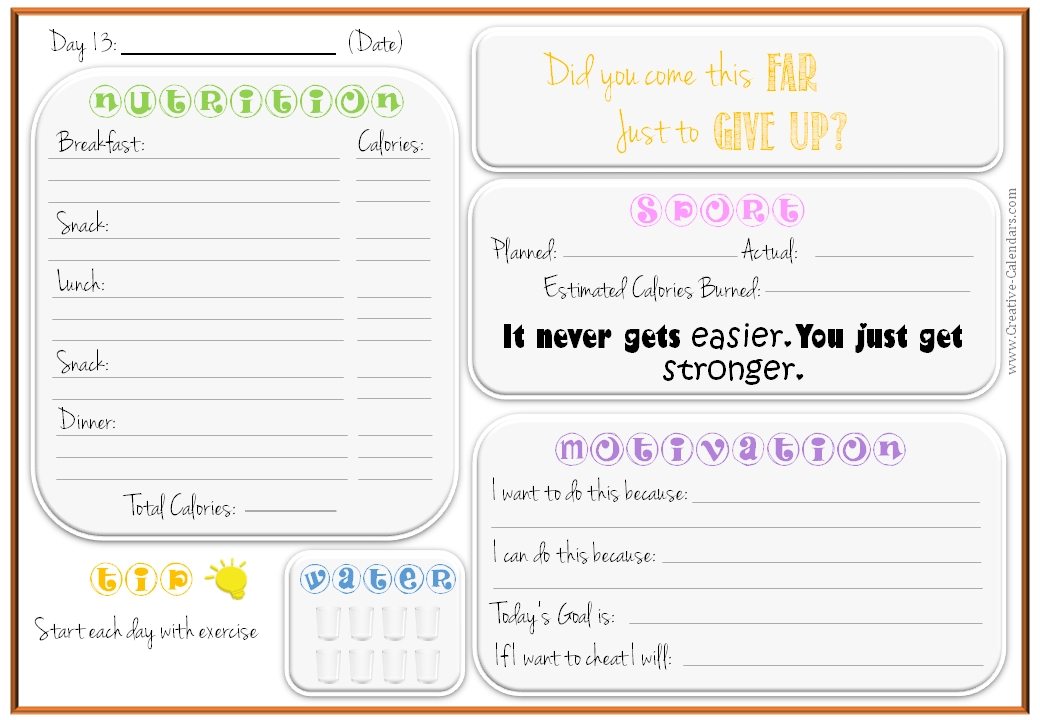 Day 13: ____________________ (Date)
NUTRITION
Breakfast: Calories:
Snack:
Lunch:
Snack:
Dinner:
Total Calories:
TIP
Start each day with exercise
WATER
Did you come this FAR
Just to GIVE UP?
SPORT
Planned: Actual:
Estimated Calories Burned:
It never gets easier. You just get
stronger.
MOTIVATION
I want to do this because:
I can do this because:
Today's Goal is:
If I want to cheat I will:
www.Creative-Calendars.com